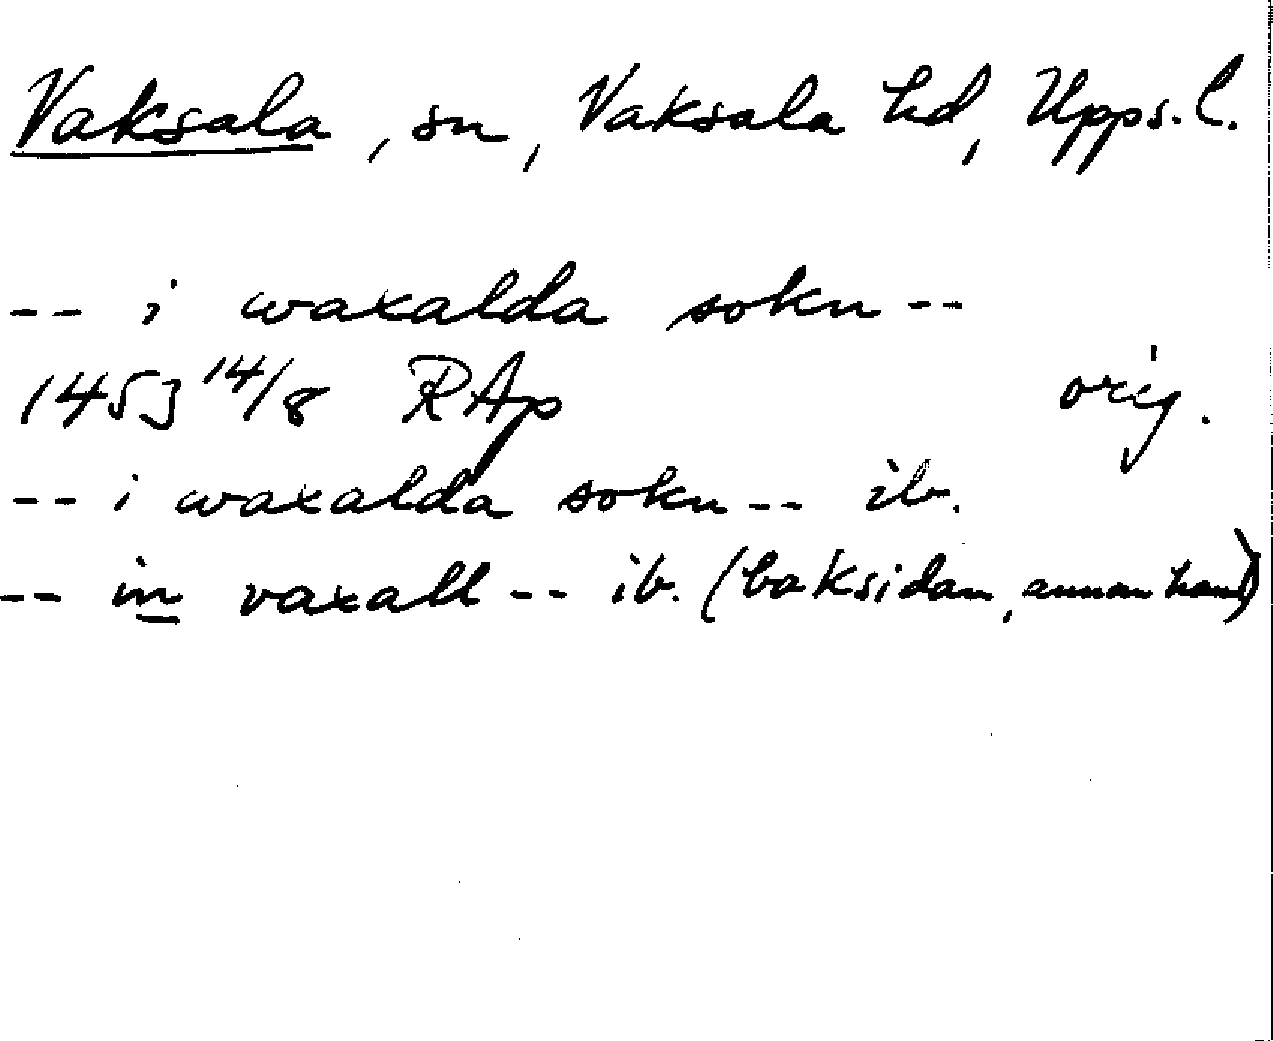 Vaksala, sn, Vaksala hd, Upps. l.
-- i waxalda sokn --
1453 14/8 RAp orig.
-- i waxalda sokn -- ib.
-- in vaxall -- ib. (baksidan, annan hand)